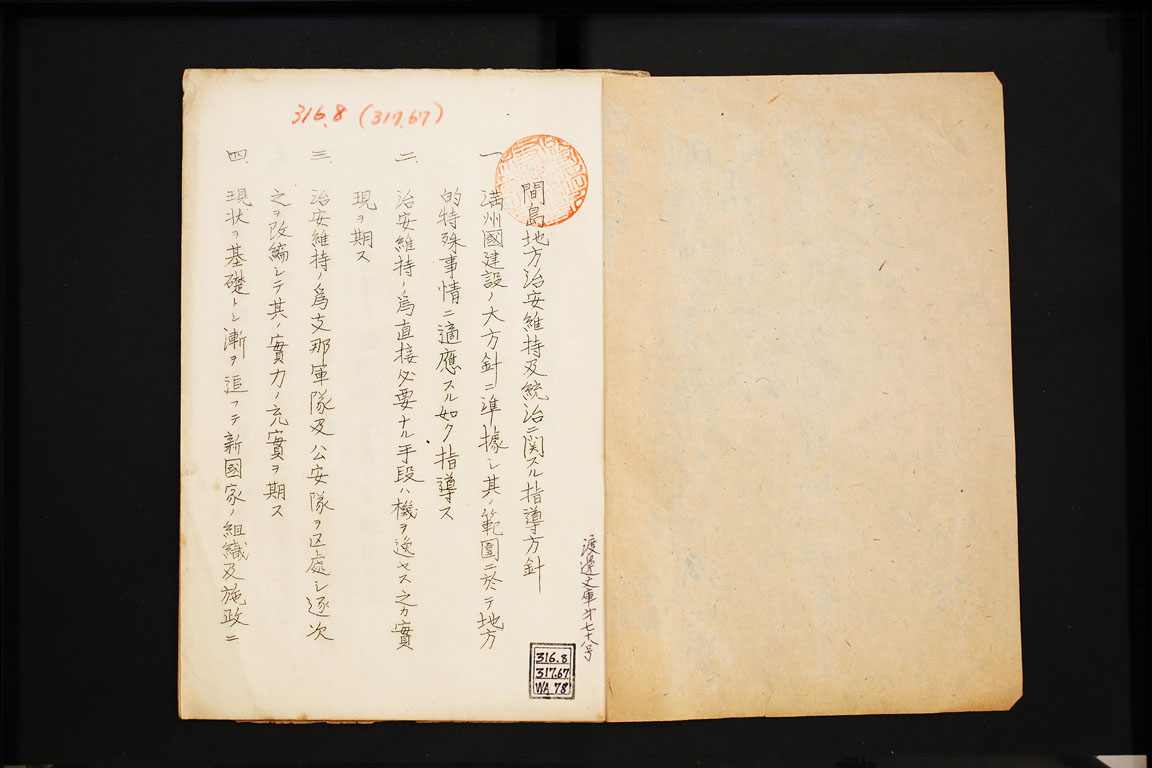 316.8 (317.67)
間島地方治安維持及統治ニ関スル指導方針
一、満州國建設ノ大方針ニ準據シ其ノ範圍ニ於テ地方
的特殊事情ニ適應スル如ク指導ス
二、治安維持ノ為直接必要ナル手段ハ機ヲ逸セス之カ實
現ヲ期ス
三、治安維持ノ爲支那軍隊及公安隊ヲ区處シ逐次
之ヲ改編シテ其ノ實力ノ充實ヲ期ス
四、現状ヲ基礎トシ漸ヲ追フテ新國家ノ組織及施政ニ
渡邊文庫才七十八号
316.8
317.67
WA 78